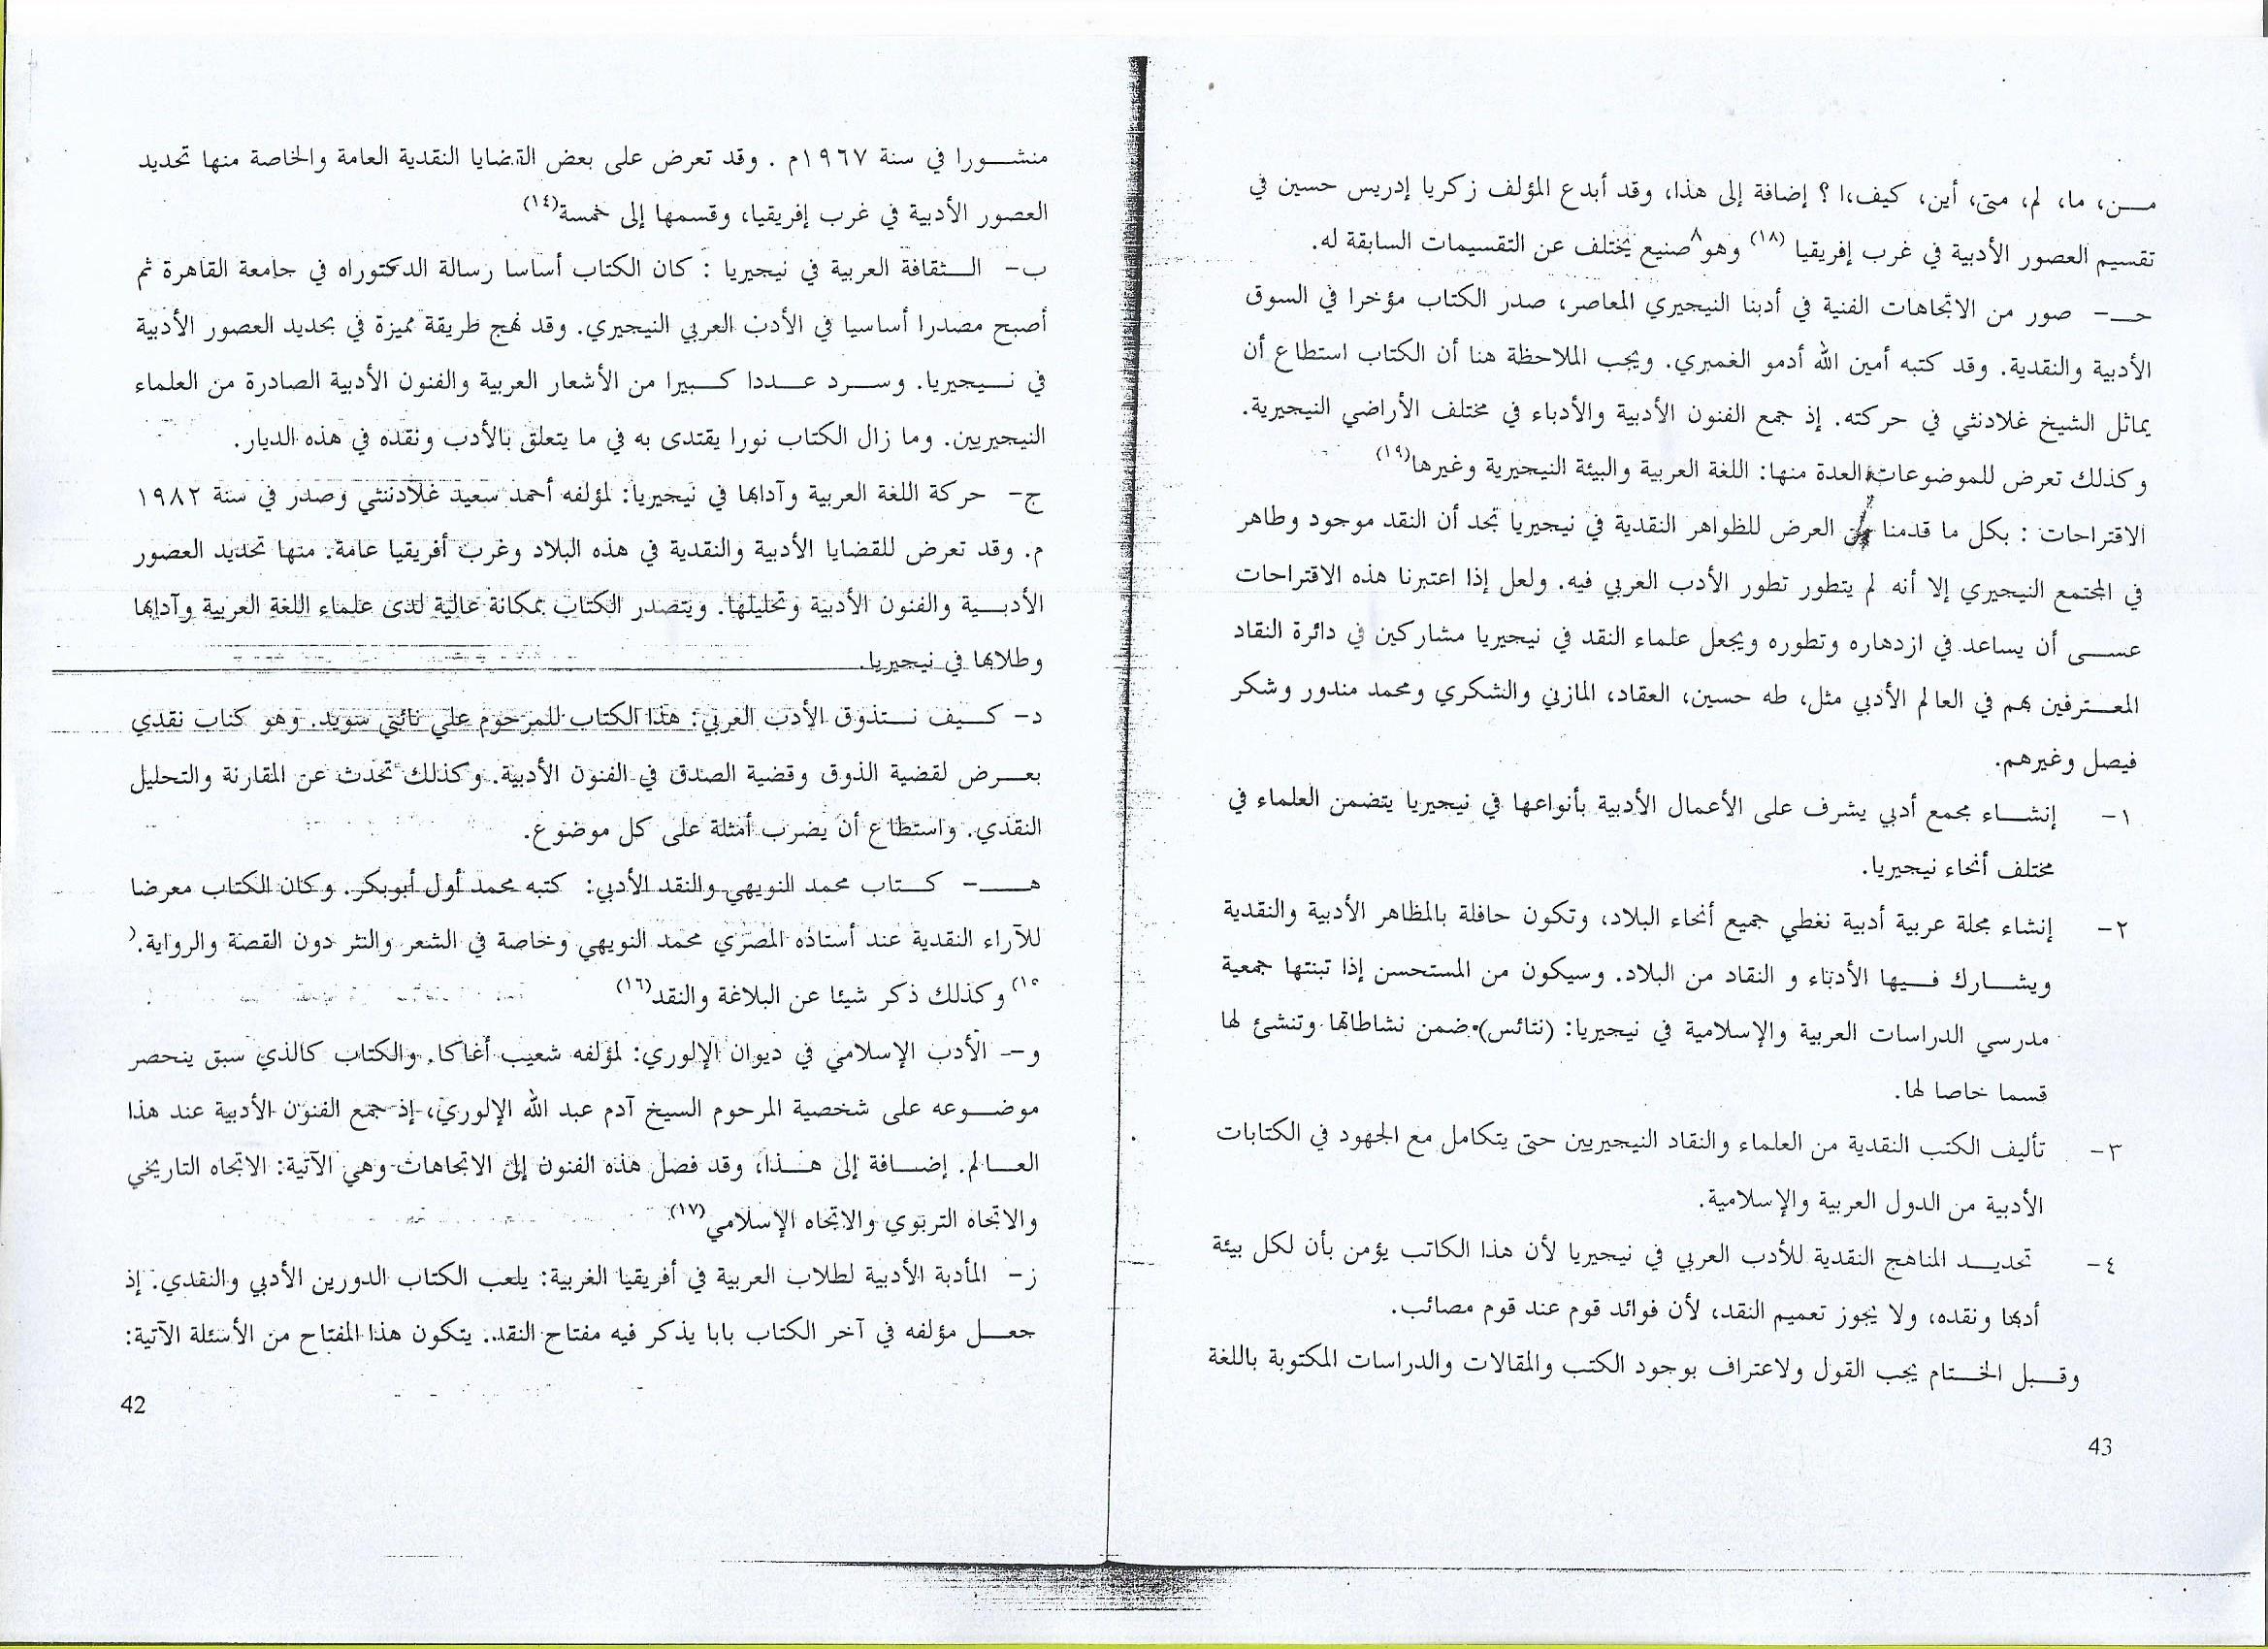 منشورا في سنة ١٩٦٧م . وقد تعرض على بعض القضايا النقدية العامة والخاصة منها تحديد
العصور الأدبية في غرب إفريقيا، وقسمها إلى خمسة(١٤)
ب- الثقافة العربية في نيجيريا : كان الكتاب أساسا رسالة الدكتوراه في جامعة القاهرة ثم
أصبح مصدرا أساسيا في الأدب العربي النيجيري. وقد نهج طريقة مميزة في بحديد العصور الأدبية
في نيجيريا. وسرد عددا كبيرا من الأشعار العربية والفنون الأدبية الصادرة من العلماء
النيجيريين. وما زال الكتاب نورا يقتدى به في ما يتعلق بالأدب ونقده في هذه الديار.
ج- حركة اللغة العربية وآدابها في نيجيريا: لمؤلفه أحمد سعيد غلادنثي وصدر في سنة ١٩٨٢
م. وقد تعرض للقضايا الأدبية والنقدية في هذه البلاد وغرب أفريقيا عامة. منها تحديد العصور
الأدبية والفنون الأدبية وتحليلها. ويتصدر الكتاب بمكانة عالية لدى علماء اللغة العربية وآدابها
وطلابها في نيجيريا.
د- كيف نتذوق الأدب العربي: هذا الكتاب للمرحوم علي نائبي سويد. وهو كتاب نقدي
بعرض لقضية الذوق وقضية الصدق في الفنون الأدبية. وكذلك تحدث عن المقارنة والتحليل
النقدي. واستطاع أن يضرب أمثلة على كل موضوع.
هـ- كتاب محمد النويهي والنقد الأدبي: كتبه محمد أول أبوبكر. وكان الكتاب معرضا
للآراء النقدية عند أستاذه المصري محمد النويهي وخاصة في الشعر والنثر دون القصة والرواية.(
١٥) وكذلك ذكر شيئا عن البلاغة والنقد(١٦)
و- الأدب الإسلامي في ديوان الإلوري: لمؤلفه شعيب أغاكا. والكتاب كالذي سبق ينحصر
موضوعه على شخصية المرحوم السيخ آدم عبد الله الإلوري، إذ جمع الفنون الأدبية عند هذا
العالم. إضافة إلى هذا، وقد فصل هذه الفنون إلى الاتجاهات وهي الآتية: الاتجاه التاريخي
والاتجاه التربوي والاتجاه الإسلامي(١٧)
ز- المأدبة الأدبية لطلاب العربية في أفريقيا الغربية: يلعب الكتاب الدورين الأدبي والنقدي. إذ
جعل مؤلفه في آخر الكتاب بابا يذكر فيه مفتاح النقد. يتكون هذا المفتاح من الأسئلة الآتية:
42
من، ما، لم، متى، أين، كيف،ا ؟ إضافة إلى هذا، وقد أبدع المؤلف زكريا إدريس حسين في
تقسيم العصور الأدبية في غرب إفريقيا (١٨) وهو صنيع يختلف عن التقسيمات السابقة له.
حـ- صور من الاتجاهات الفنية في أدبنا النيجيري المعاصر، صدر الكتاب مؤخرا في السوق
الأدبية والنقدية. وقد كتبه أمين الله أدمو الغمبري. ويجب الملاحظة هنا أن الكتاب استطاع أن
يماثل الشيخ غلادنثي في حركته. إذ جمع الفنون الأدبية والأدباء في مختلف الأراضي النيجيرية.
وكذلك تعرض للموضوعات العدة منها: اللغة العربية والبيئة النيجيرية وغيرها(١٩)
الاقتراحات : بكل ما قدمنا العرض للظواهر النقدية في نيجيريا تجد أن النقد موجود وطاهر
في المجتمع النيجيري إلا أنه لم يتطور تطور الأدب العربي فيه. ولعل إذا اعتبرنا هذه الاقتراحات
عسى أن يساعد في ازدهاره وتطوره ويجعل علماء النقد في نيجيريا مشاركين في دائرة النقاد
المعترفين بهم في العالم الأدبي مثل، طه حسين، العقاد، المازني والشكري ومحمد مندور وشكر
فيصل وغيرهم.
١- إنشاء مجمع أدبي يشرف على الأعمال الأدبية بأنواعها في نيجيريا يتضمن العلماء في
مختلف أنحاء نيجيريا.
٢- إنشاء مجلة عربية أدبية نغطي جميع أنحاء البلاد، وتكون حافلة بالمظاهر الأدبية والنقدية
ويشارك فيها الأدباء و النقاد من البلاد. وسيكون من المستحسن إذا تبنتها جمعية
مدرسي الدراسات العربية والإسلامية في نيجيريا: (نتائس) ضمن نشاطاتها وتنشئ لها
قسما خاصا لها.
٣- تأليف الكتب النقدية من العلماء والنقاد النيجيريين حتى يتكامل مع الجهود في الكتابات
الأدبية من الدول العربية والإسلامية.
٤- تحديد المناهج النقدية للأدب العربي في نيجيريا لأن هذا الكاتب يؤمن بأن لكل بيئة
أدبها ونقده، ولا يجوز تعميم النقد، لأن فوائد قوم عند قوم مصائب.
وقبل الختام يجب القول ولاعتراف بوجود الكتب والمقالات والدراسات المكتوبة باللغة
43